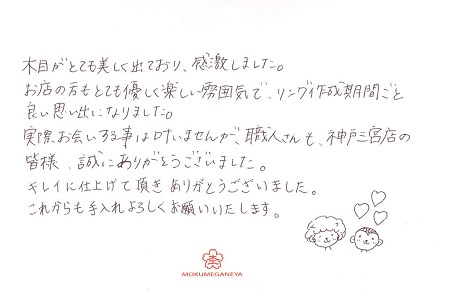 木目がとても美しく出ており、感激しました。
お店の方もとても優しく楽しい雰囲気で、リング作成期間ごと
良い思い出になりました。
実際お会いする事は叶いませんが、職人さんも、神戸三宮店の
皆様、誠にありがとうございました。
キレイに仕上げて頂きありがとうございました。
これからも手入れよろしくお願いいたします。
MOKUMEGANEYA